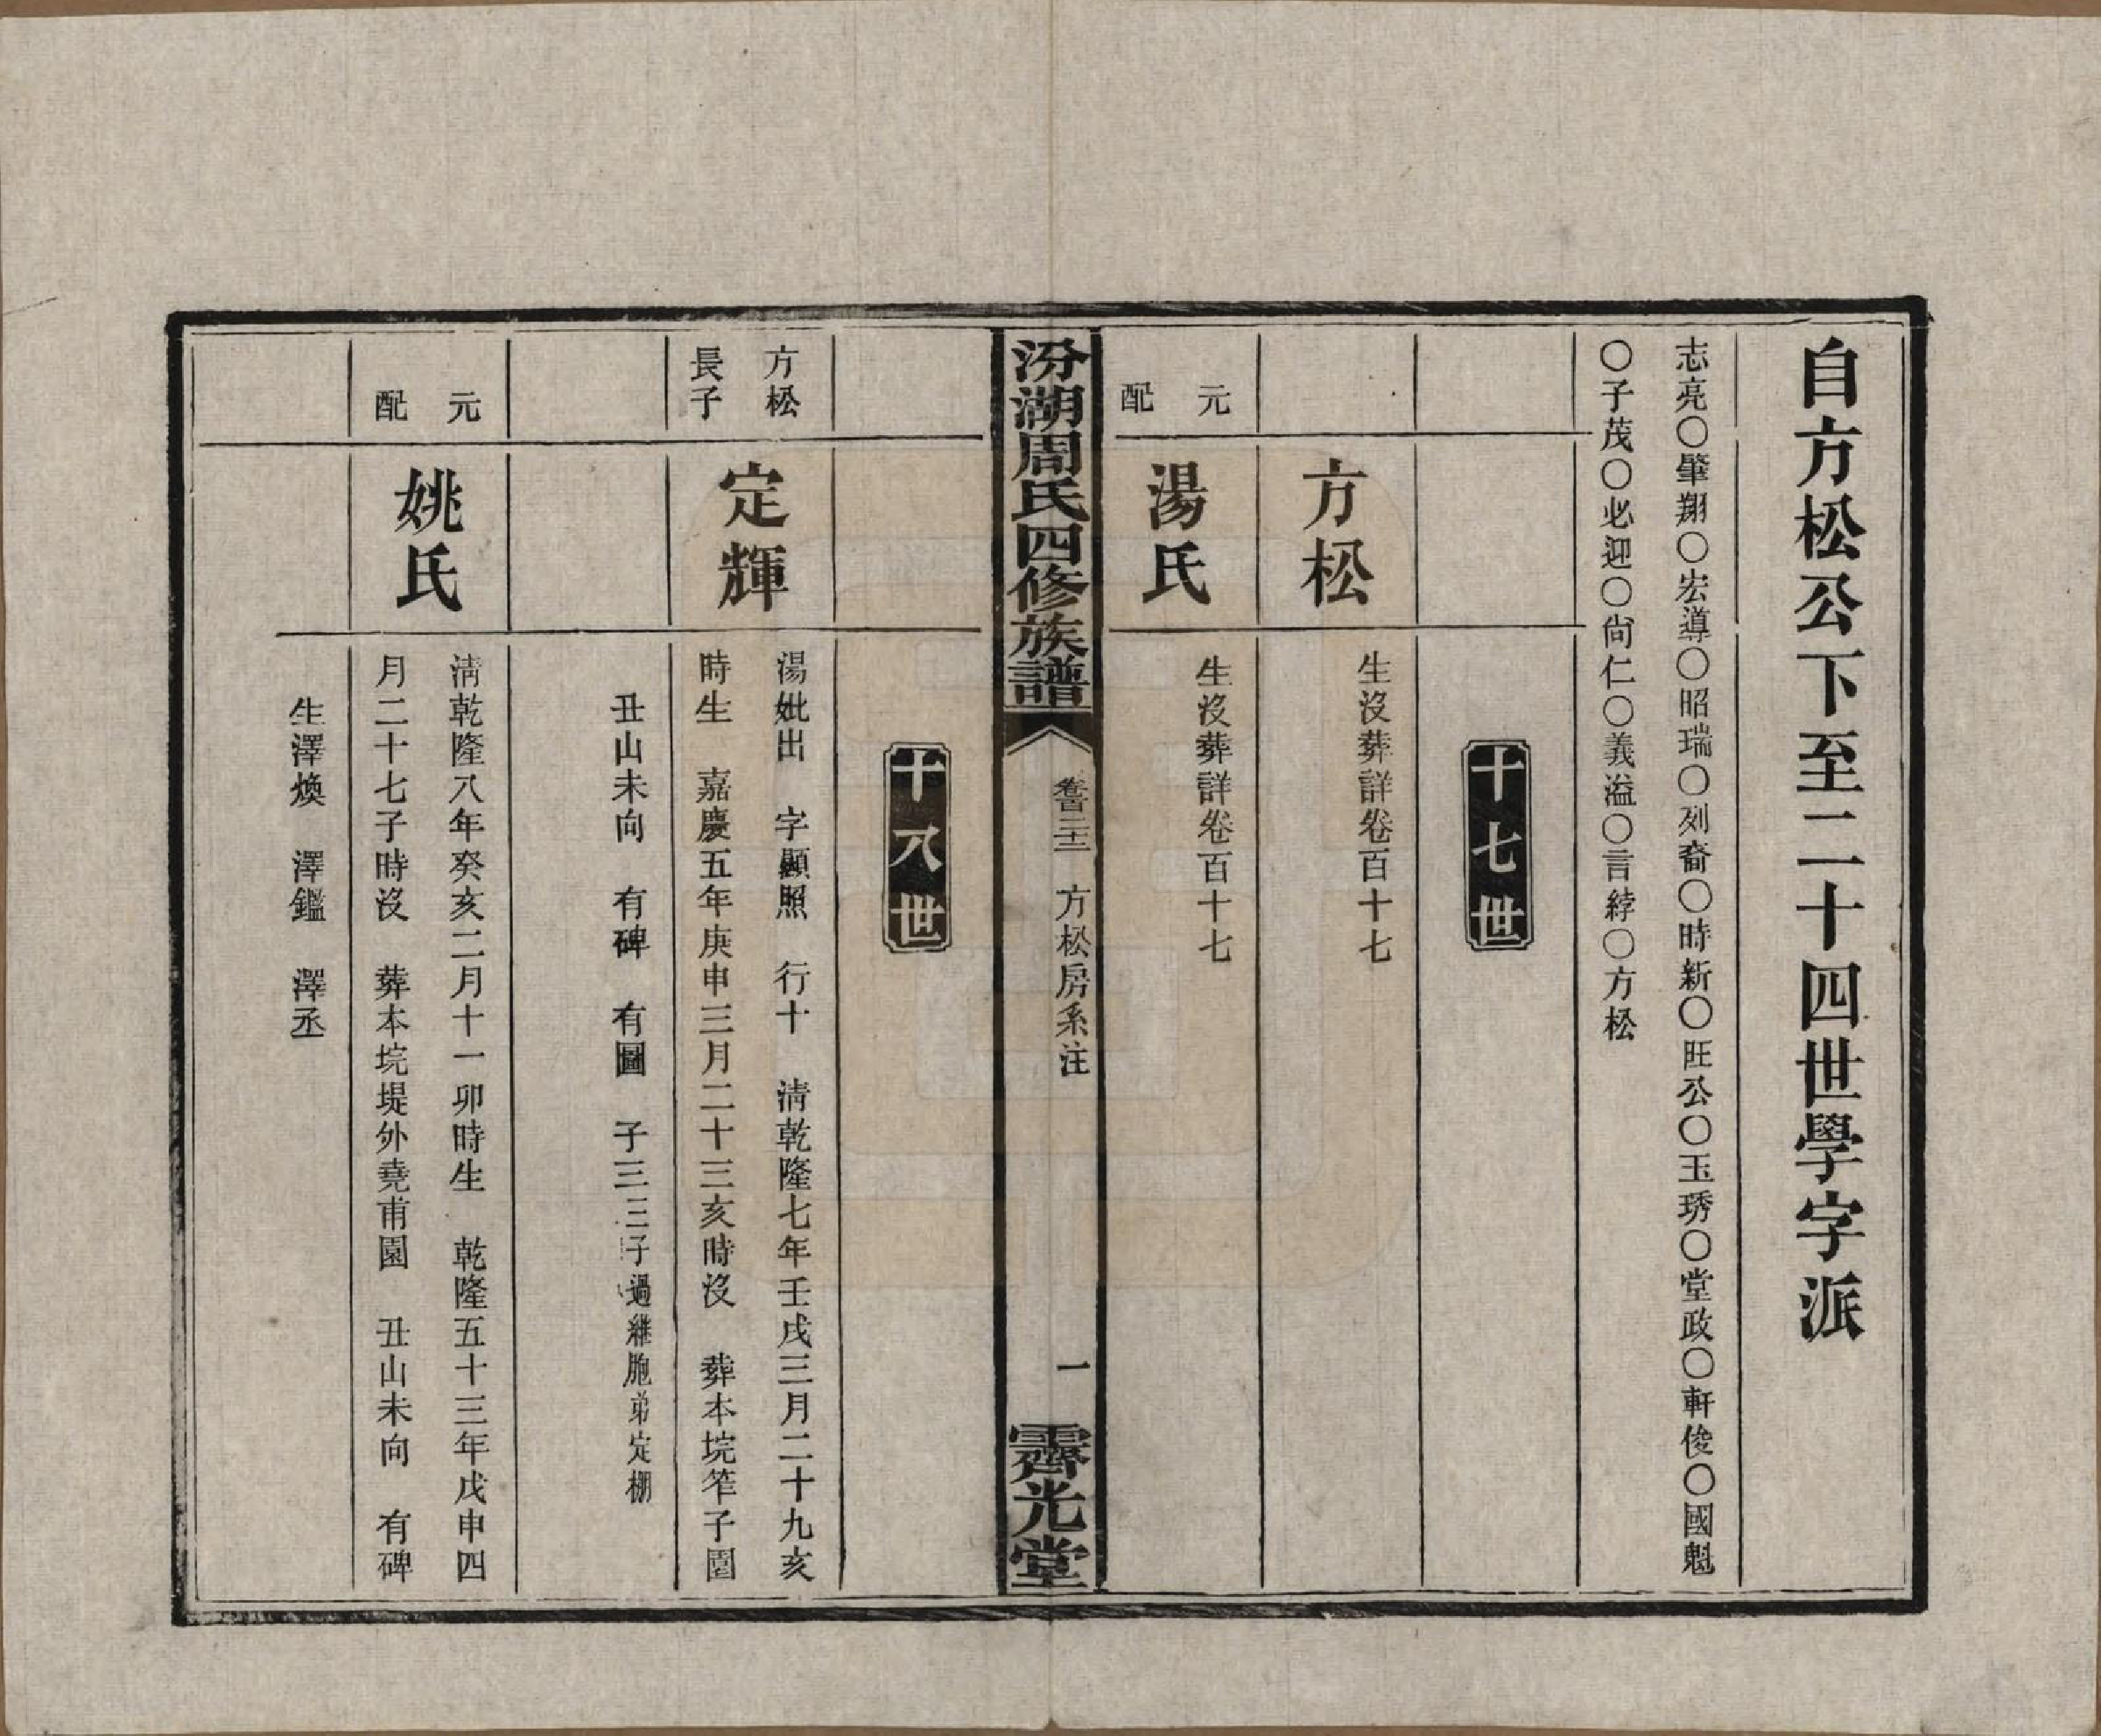 自方松公下至二十四世學字派
志亮〇肇翔〇宏導〇昭瑞〇列裔〇時新〇旺公〇玉琇〇堂政〇軒俊〇國魁
〇子茂〇必迎〇尙仁〇義溢〇言綍〇方松
十七世
方松
生沒葬詳卷百十七
元
配
湯氏
生沒葬詳卷百十七
汾湖周氏四修族譜
方松房系注
一
霽光堂
十八世
方松
長子
定輝
湯妣出 字顯照 行十 清乾隆七年壬戌三月二十九亥
時生 嘉慶五年庚申三月二十三亥時沒 葬本垸笮子園
丑山未向 有碑 有圖 子三 三子過繼胞弟定棚
元
配
姚氏
清乾隆八年癸亥二月十一卯時生 乾隆五十三年戊申四
月二十七子時沒 葬本垸堤外堯甫園 丑山未向 有碑
生澤煥 澤鑑 澤丞